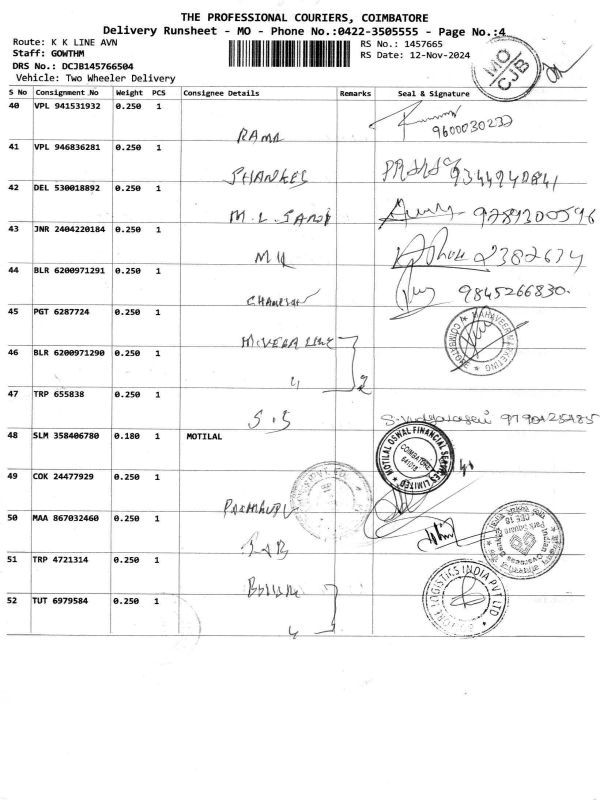 THE PROFESSIONAL COURIERS, COIMBATORE
Delivery Runsheet - MO - Phone No.:0422-3505555 - Page No.:4
Route: K K LINE AVN
RS No.: 1457665
Staff: GOWTHM
RS Date: 12-Nov-2024
DRS No.: DCJB145766504
Vehicle: Two Wheeler Delivery
MO
CJB
S No Consignment No Weight PCS Consignee Details Remarks Seal & Signature
40 VPL 941531932 0.250 1
RAMA 9600030232
41 VPL 946836281 0.250 1
9344940841
42 DEL 530018892 0.250 1
M.L. 9789300596
43 JNR 2404220184 0.250 1
2382674
44 BLR 6200971291 0.250 1
9845266830.
45 PGT 6287724 0.250 1
MAHAVEER MARKETING
COIMBATORE
46 BLR 6200971290 0.250 1
2
47 TRP 655838 0.250 1
S.S
48 SLM 358406780 0.180 1 MOTILAL
MOTILAL OSWAL FINANCIAL SERVICES LIMITED
COIMBATORE
641018
49 COK 24477929 0.250 1
50 MAA 867032460 0.250 1
Indian Overseas Bank
Park Square
CBE 18
51 TRP 4721314 0.250 1
LOGISTICS INDIA PVT LTD
52 TUT 6979584 0.250 1